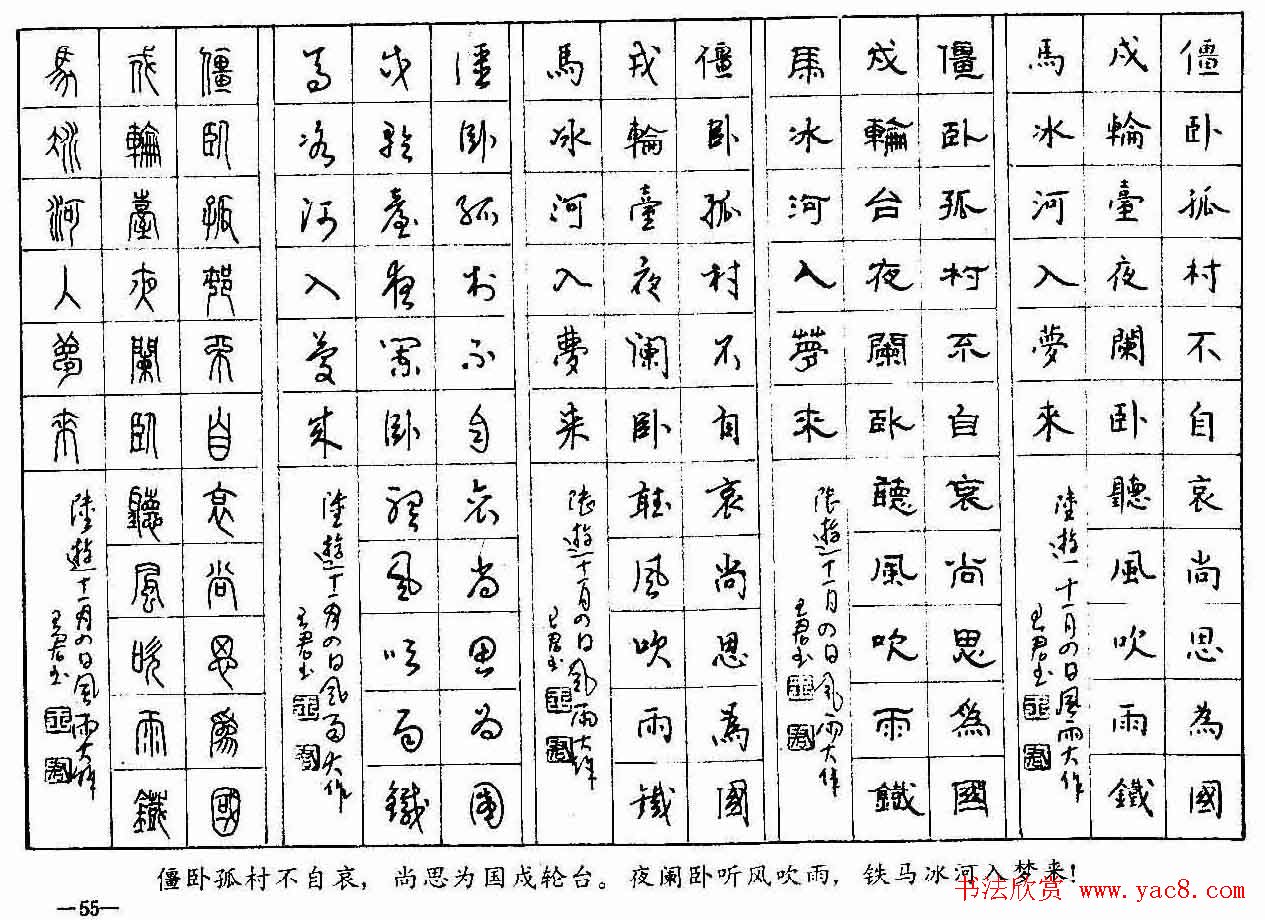 僵卧孤村不自哀尚思為國
戍輪臺夜闌卧聽風吹雨鐵
馬冰河入夢來
陸游十一月四日風雨大作
僵卧孤村不自哀尚思為國
戍輪台夜闌卧聽風吹雨鐵
馬冰河入夢來
陸游十一月四日風雨大作
僵卧孤村不自哀尚思為國
戍輪臺夜闌卧聽風吹雨鐵
馬冰河入夢来
陸游十一月四日風雨大作
僵卧孤村不自哀尚思為國
戍輪臺夜闌卧聽風吹雨鐵
馬冰河入夢來
陸游十一月四日風雨大作
僵臥孤邨不自哀尚思為國
戍輪臺夜闌臥聽風吹雨鐵
馬冰河入夢來
陸游十一月四日風雨大作
僵卧孤村不自哀，尚思为国戍轮台。夜阑卧听风吹雨，铁马冰河入梦来！
—55—
书法欣赏 www.yac8.com